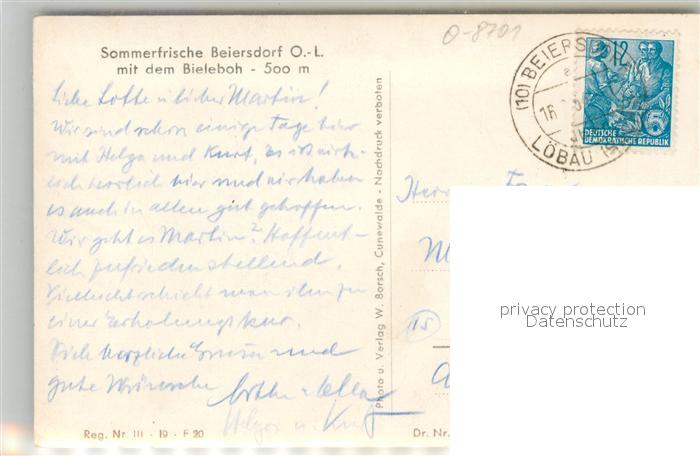 O-8701
Sommerfrische Beiersdorf O.-L.
mit dem Bieleboh - 500 m
Liebe Lotte u. lieber Martin!
Wir sind schon einige Tage hier
mit Helga und Kurt, es ist wirk-
lich herrlich hier und wir haben
es auch in allem gut getroffen.
Wie geht es Martin? Hoffent-
lich zufriedenstellend.
Vielleicht schickt man ihn zu
einer Erholungskur.
Herzliche Grüsse und
gute Wünsche
Helga u. Kurt
Photo u. Verlag W. Borsch, Cunewalde - Nachdruck verboten
(10) BEIERSD
16
LÖBAU (
12
DEUTSCHE
DEMOKRATISCHE REPUBLIK
5
Herrn
M
15
privacy protection
Datenschutz
Reg. Nr. III - 19 - F 20
Dr. Nr.